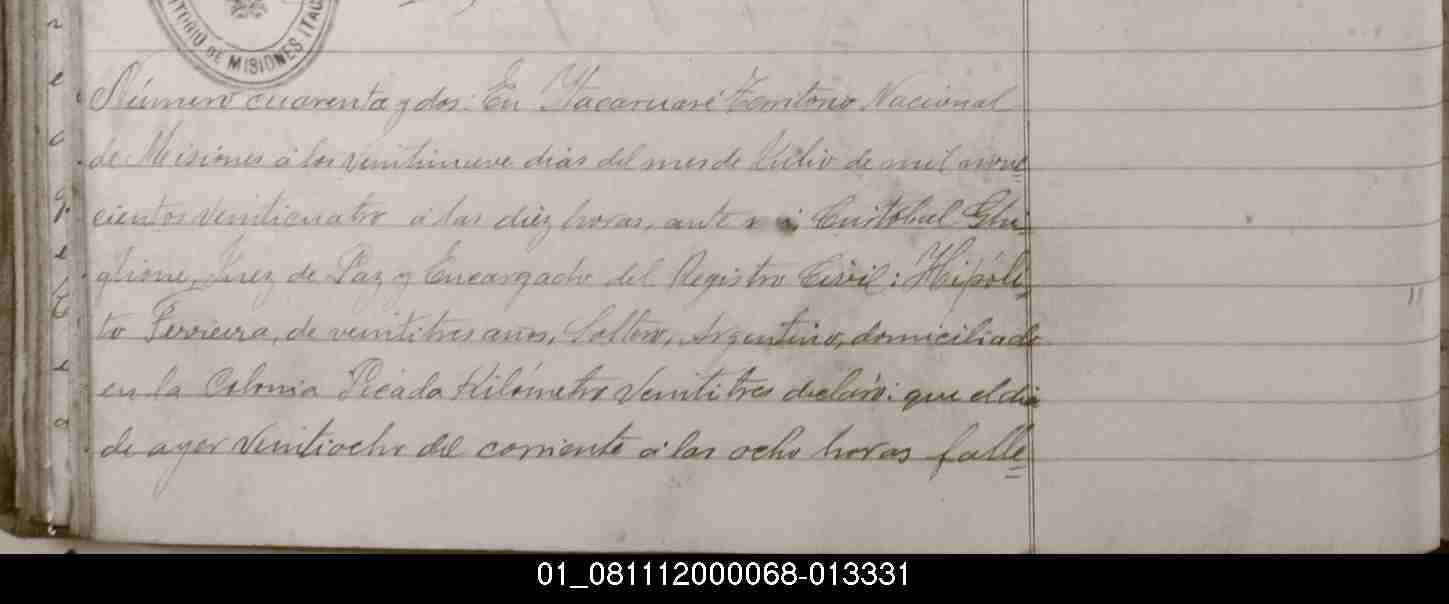 TORIO DE MISIONES ITACA
Número cuarenta y dos: En Itacaruaré Territorio Nacional
de Misiones á los veintinueve dias del mes de Julio de mil nove
cientos veinticuatro á las diez horas, ante mi Cristobal Ghi-
glione, Juez de Paz y Encargado del Registro Civil: Hipóli-
to Ferrieira, de veintitres años, Soltero, Argentino, domiciliado
en la Colonia Picada Kilómetro Veintitres declaró: que el dia
de ayer Veintiocho del corriente á las ocho horas falle
01_081112000068-013331